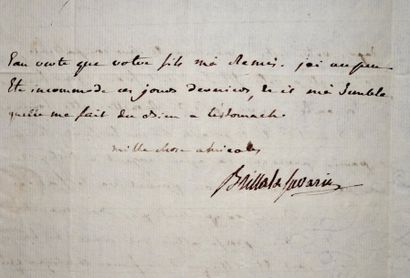 l'eau verte que votre fils m'a remis. j'ai un peu
Eté incommodé ces jours derniers, & il me Semble
quelle me fait du bien a lestomach.
mille choses amicales
Brillat Savarin